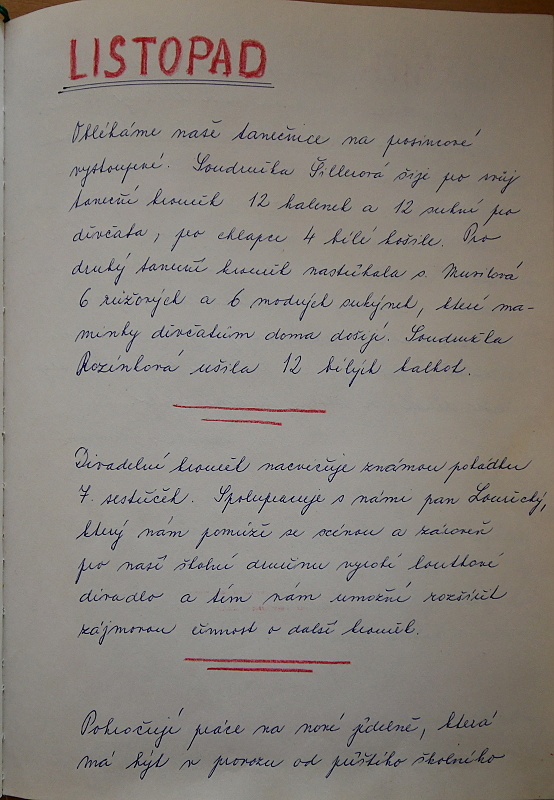 LISTOPAD
Oblékáme naše tanečnice na prosincové
vystoupení. Soudružka Šillerová šije pro svůj
taneční kroužek 12 halenek a 12 sukní pro
děvčata, pro chlapce 4 bílé košile. Pro
druhý taneční kroužek nastříhala s. Musilová
6 růžových a 6 modrých sukýnek, které ma-
minky děvčatům doma došijí. Soudružka
Rozínková ušila 12 bílých kalhot.
Divadelní kroužek nacvičuje známou pohádku
7. sestřiček. Spolupracuje s námi pan Louvický,
který nám pomůže se scénou a zároveň
pro naší školní družinu vyrobí loutkové
divadlo a tím nám umožní rozšířit
zájmovou činnost o další kroužek.
Pokročují práce na nové jídelně, která
má být v provozu od příštího školního